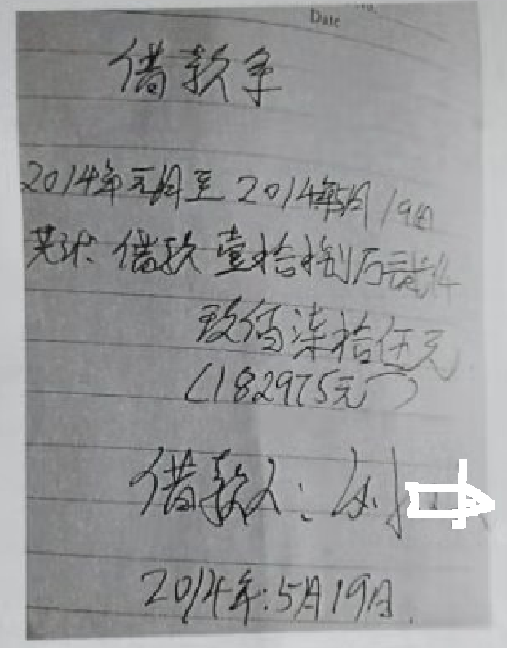 Date
借款条
2014年元月至2014年5月19日
共计借款壹拾捌万贰仟
玖佰柒拾伍元
(182975元)
借款人:刘
2014年:5月19日.